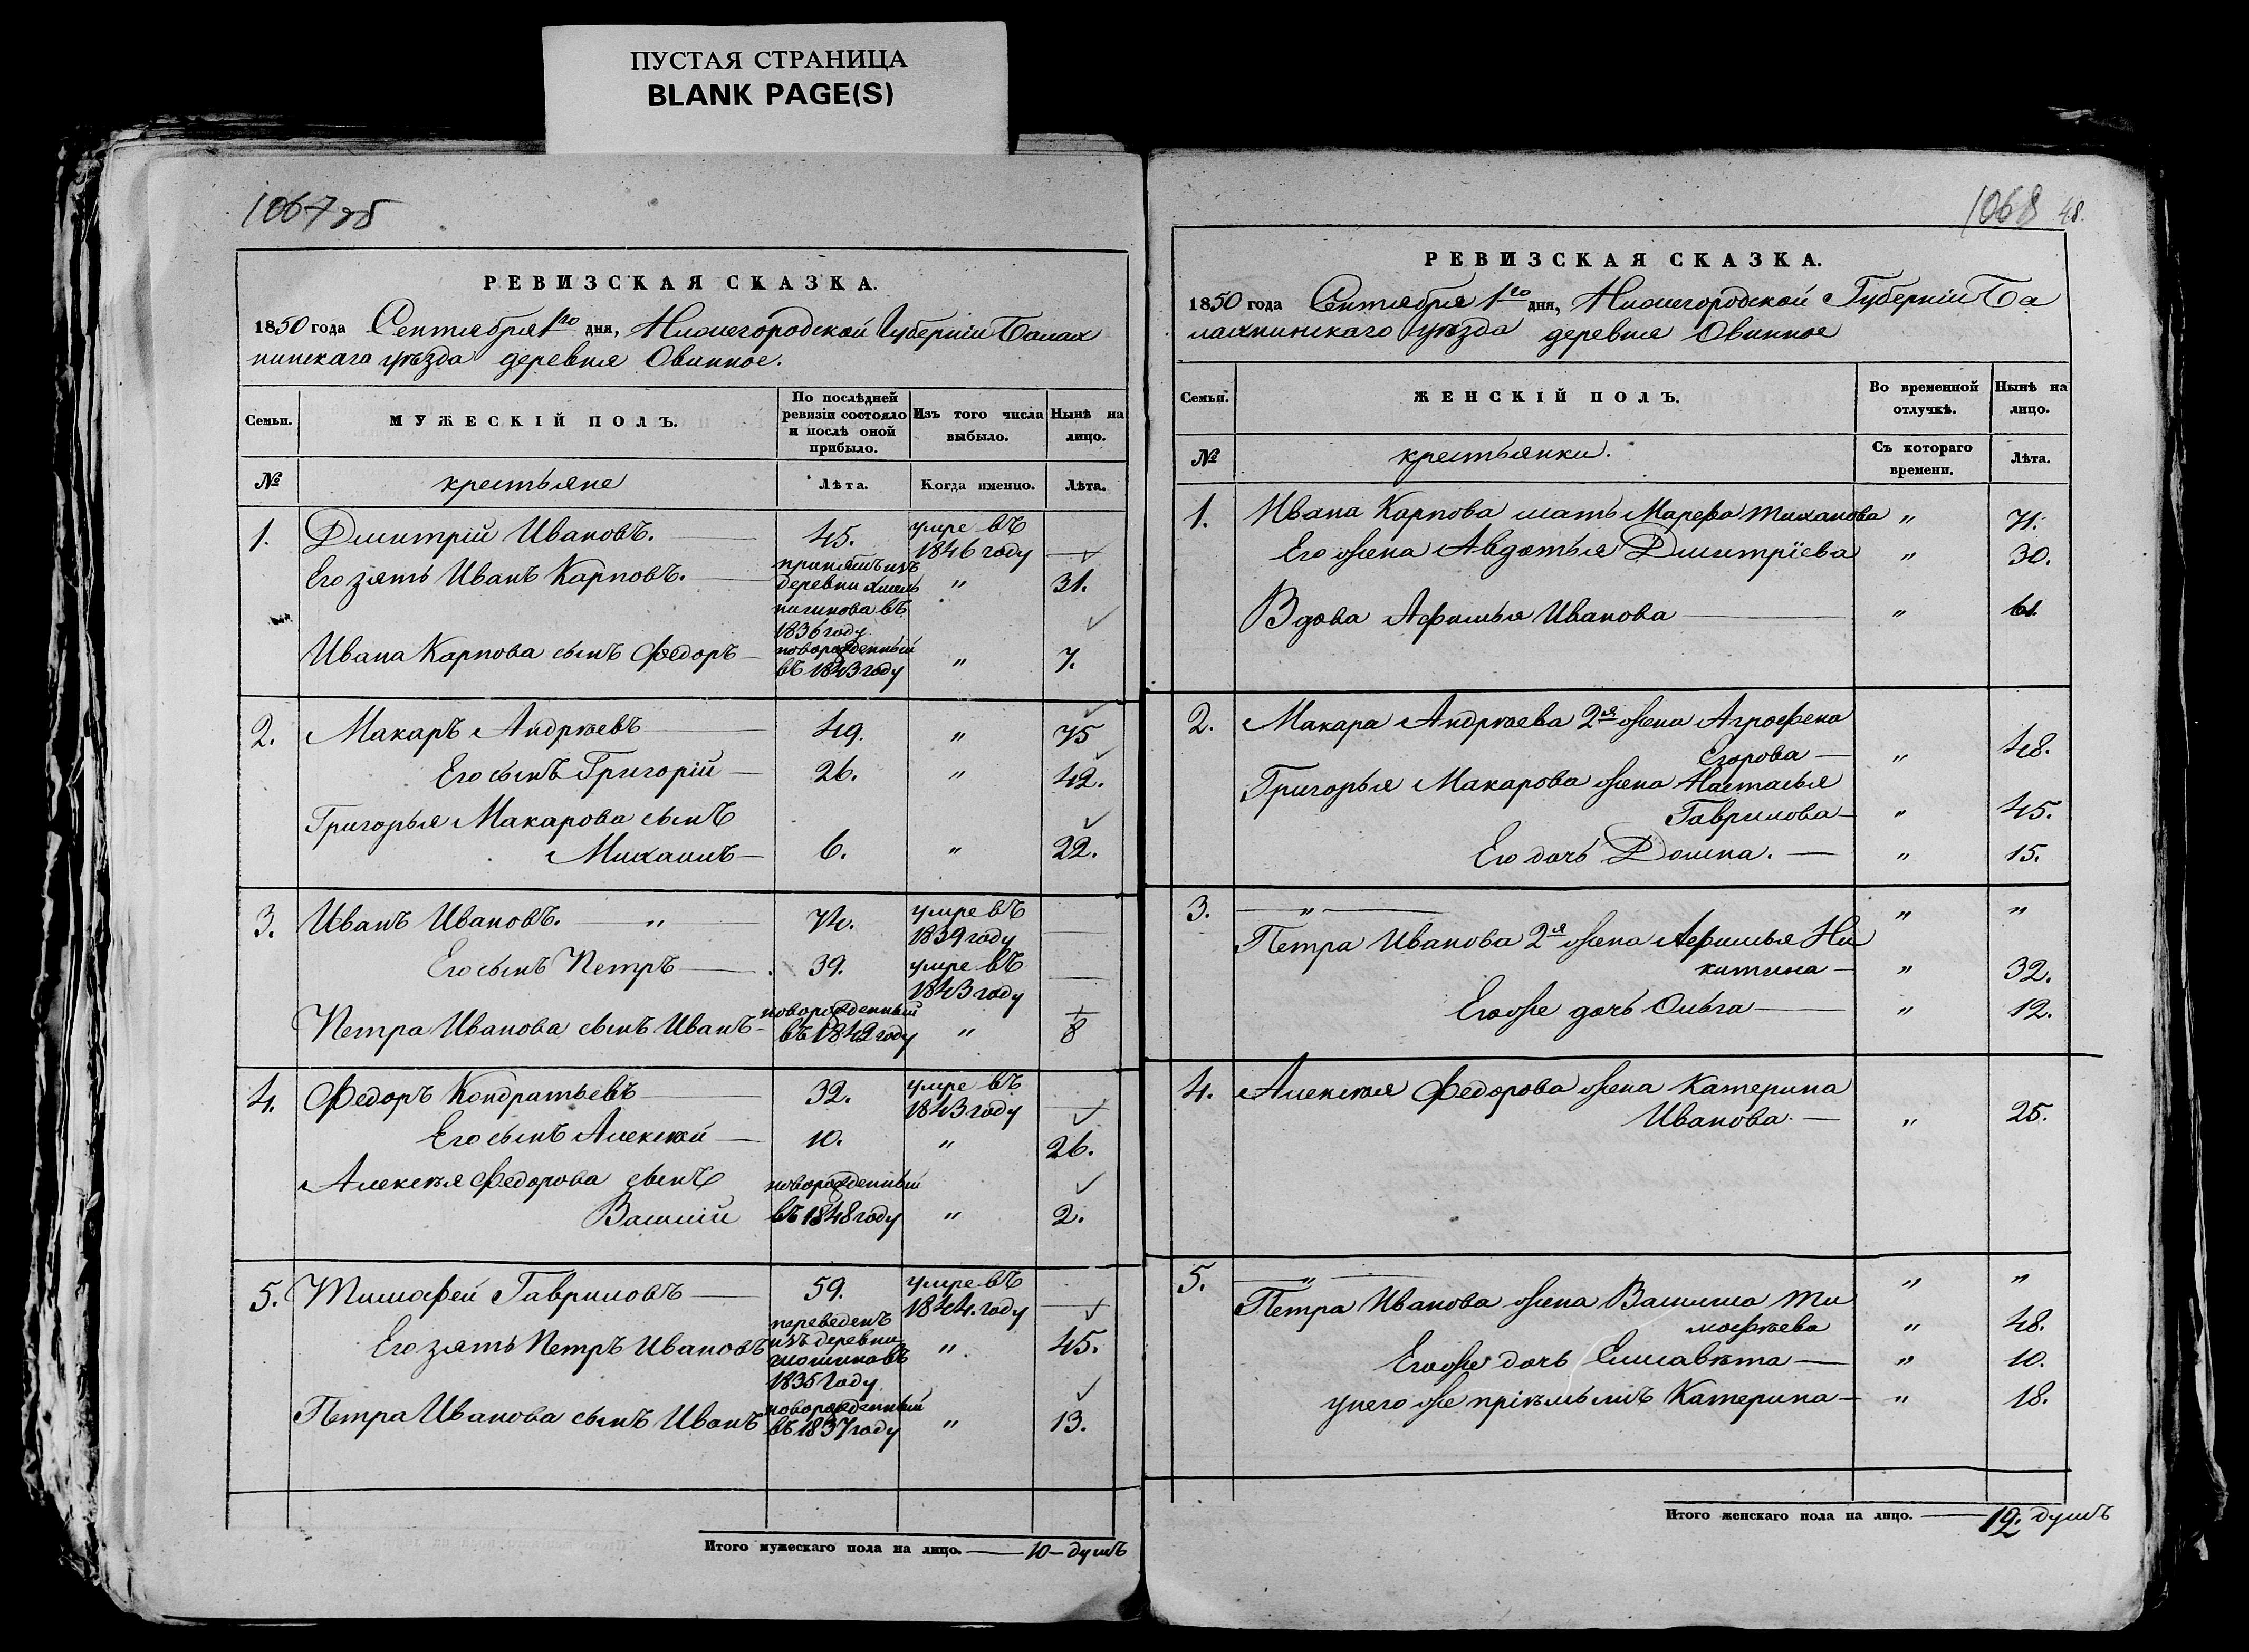 ПУСТАЯ СТРАНИЦА
BLANK PAGE(S)
1067 об
РЕВИЗСКАЯ СКАЗКА.
1850 года Сентября 1го дня, Нижегородской Губерніи Балах
нинскаго уѣзда деревня Овинное.
Семьи. МУЖЕСКІЙ ПОЛЪ. По послѣдней ревизіи состояло и послѣ оной прибыло. Изъ того числа выбыло. Нынѣ на лицо.
№ крестьяне Лѣта. Когда именно. Лѣта.
1. Дмитрій Ивановъ. 45. умре въ 1846 году —
Его зять Иванъ Карповъ. принятъ изъ деревни въ 1836 году " 31.
Ивана Карпова сынъ Федоръ новорожденный въ 1843 году " 7.
2. Макаръ Андрѣевъ 49. " 75
Его сынъ Григорій 26. " 42.
Григорья Макарова сынъ
Михаилъ 6. " 22.
3. Иванъ Ивановъ. " 74. умре въ 1839 году —
Его сынъ Петръ 39. умре въ 1843 году —
Петра Иванова сынъ Иванъ новорожденный въ 1842 году " 8
4. Федоръ Кондратьевъ 32. умре въ 1843 году —
Его сынъ Алексѣй 10. " 26.
Алексѣя Федорова сынъ
Василій новорожденный въ 1848 году " 2.
5. Тимофей Гавриловъ 59. умре въ 1844 году —
Его зять Петръ Ивановъ переведенъ изъ деревни 1835 году " 45.
Петра Иванова сынъ Иванъ новорожденный въ 1837 году " 13.
Итого мужескаго пола на лицо. — 10 – душъ
1068 48.
РЕВИЗСКАЯ СКАЗКА.
1850 года Сентября 1го дня, Нижегородской Губерніи Ба
лахнинскаго уѣзда деревня Овинное
Семьи. ЖЕНСКІЙ ПОЛЪ. Во временной отлучкѣ. Нынѣ на лицо.
№ крестьянки. Съ котораго времени. Лѣта.
1. Ивана Карпова мать Марефа Тиханова " 71.
Его жена Авдотья Дмитріева " 30.
Вдова Афимья Иванова " 61.
2. Макара Андрѣева 2я жена Агрофена
Егорова — " 48.
Григорья Макарова жена Настасья
Гаврилова — " 45.
Его дочь Домна. — " 15.
3. — " — " "
Петра Иванова 2я жена Афимья Ни
китина — " 32.
Его же дочь Ольга — " 12.
4. Алексѣя Федорова жена Катерина
Иванова — " 25.
5. — " — " "
Петра Иванова жена Васлиса Ти
мофѣева " 48.
Его же дочь Елисавѣта — " 10.
у него же пріѣмышъ Катерина — " 18.
Итого женскаго пола на лицо. — 12. душъ